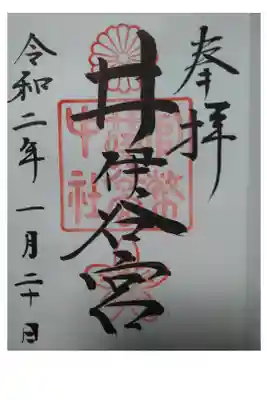 奉拝
井伊谷宮
令和二年一月二十日